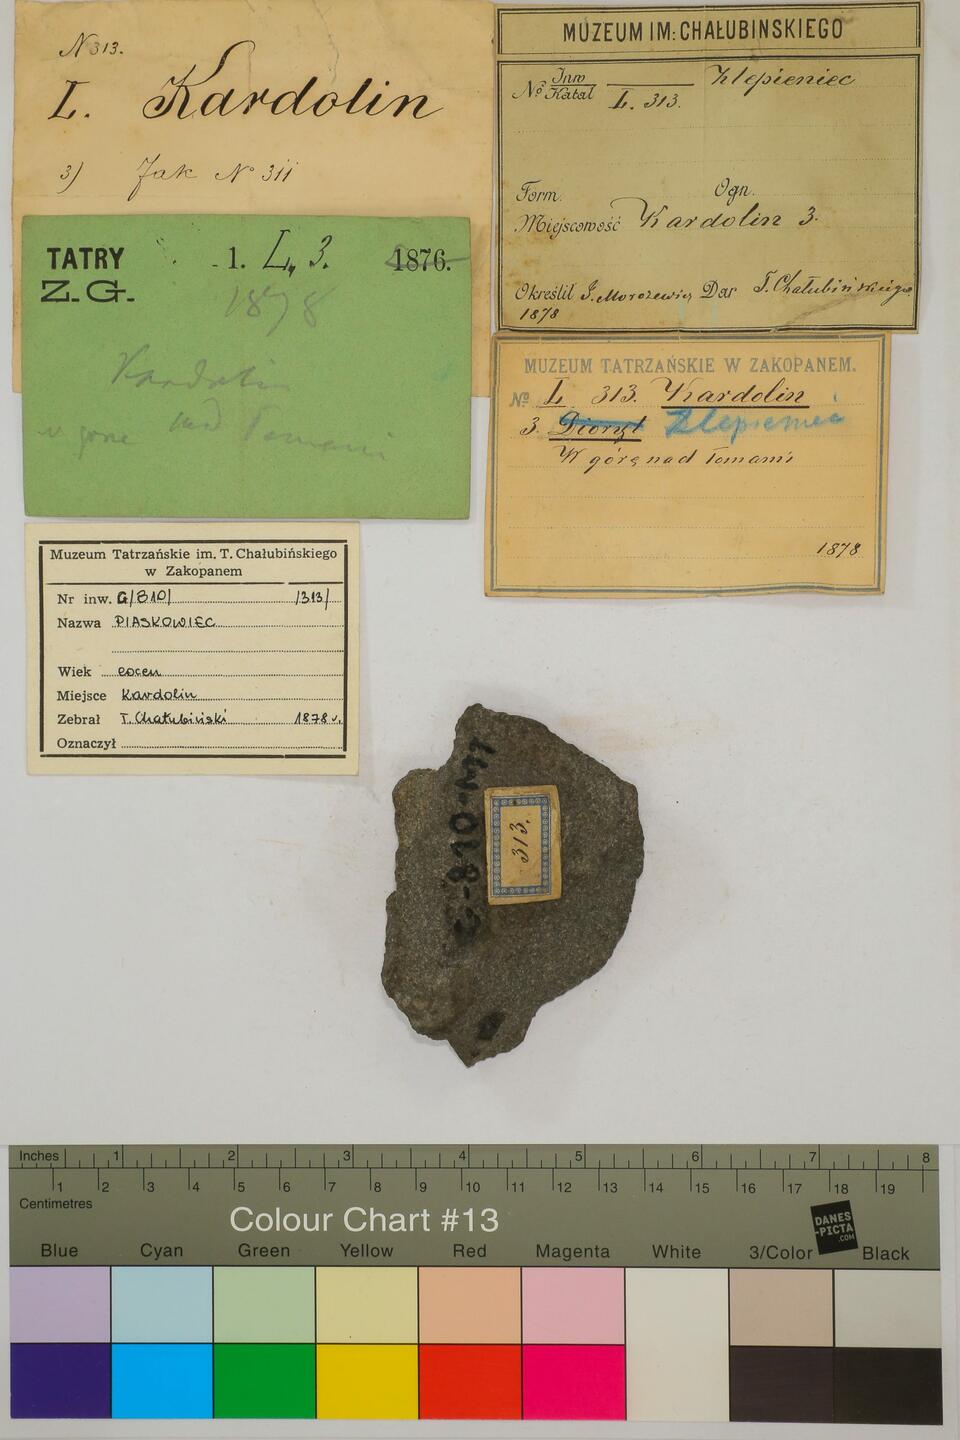 N 313.
L. Kardolin
3) Jak No 311
MUZEUM IM: CHAŁUBINSKIEGO
No Inw
Katal L. 313. Zlepieniec
Form. Ogn.
Miejscowość Kardolin 3.
Określił J. Morozewicz Dar T. Chałubińskiego
1878
TATRY 1. L, 3. 1876.
Z.G.
1878
Kardolin
w górę nad Tomami
MUZEUM TATRZAŃSKIE W ZAKOPANEM.
No L 313. Kardolin
3. Dioryt Zlepieniec
W górę nad Tomami
1878
Muzeum Tatrzańskie im. T. Chałubińskiego
w Zakopanem
Nr inw. G/810/ /313/
Nazwa PIASKOWIEC
Wiek eocen
Miejsce Kardolin
Zebrał T. Chałubiński 1878 r.
Oznaczył
313.
Inches 1 2 3 4 5 6 7 8
1 2 3 4 5 6 7 8 9 10 11 12 13 14 15 16 17 18 19
Centimetres
Colour Chart #13
DANES
-PICTA
.COM
Blue Cyan Green Yellow Red Magenta White 3/Color Black